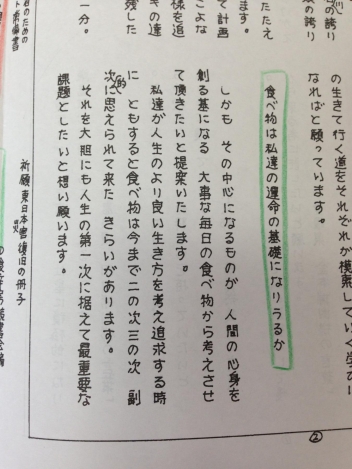 の生きて行く道をそれぞれが模索していく
なればと願っています。
食べ物は私達の運命の基礎になりうるか
しかも その中心になるものが 人間の心身を
創る基になる 大事な毎日の食べ物から考えさせ
て頂きたいと提案いたします。
私達が人生のより良い生き方を考え追求する時
に ともすると食べ物は今まで二の次三の次 副
次的に思えられて来た きらいがあります。
それを大胆にも人生の第一次に据えて最重要な
課題としたいと想い願います。
祈願 東日本大震災復旧の冊子
②
の誇り
たたえ
ます。
て計画
こよな
様を追
キの達
残した
一分。